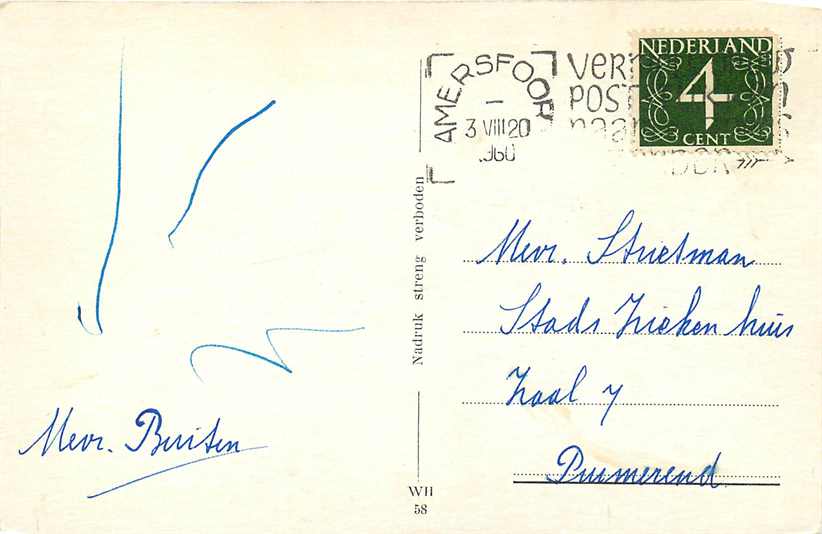 AMERSFOOR
3 VIII 20
1960
POST
NEDERLAND
4
CENT
Mevr. Strietman
Stads Zieken huis
Zaal 7
Purmerend
Mevr. Buiten
Nadruk streng verboden
WH
58